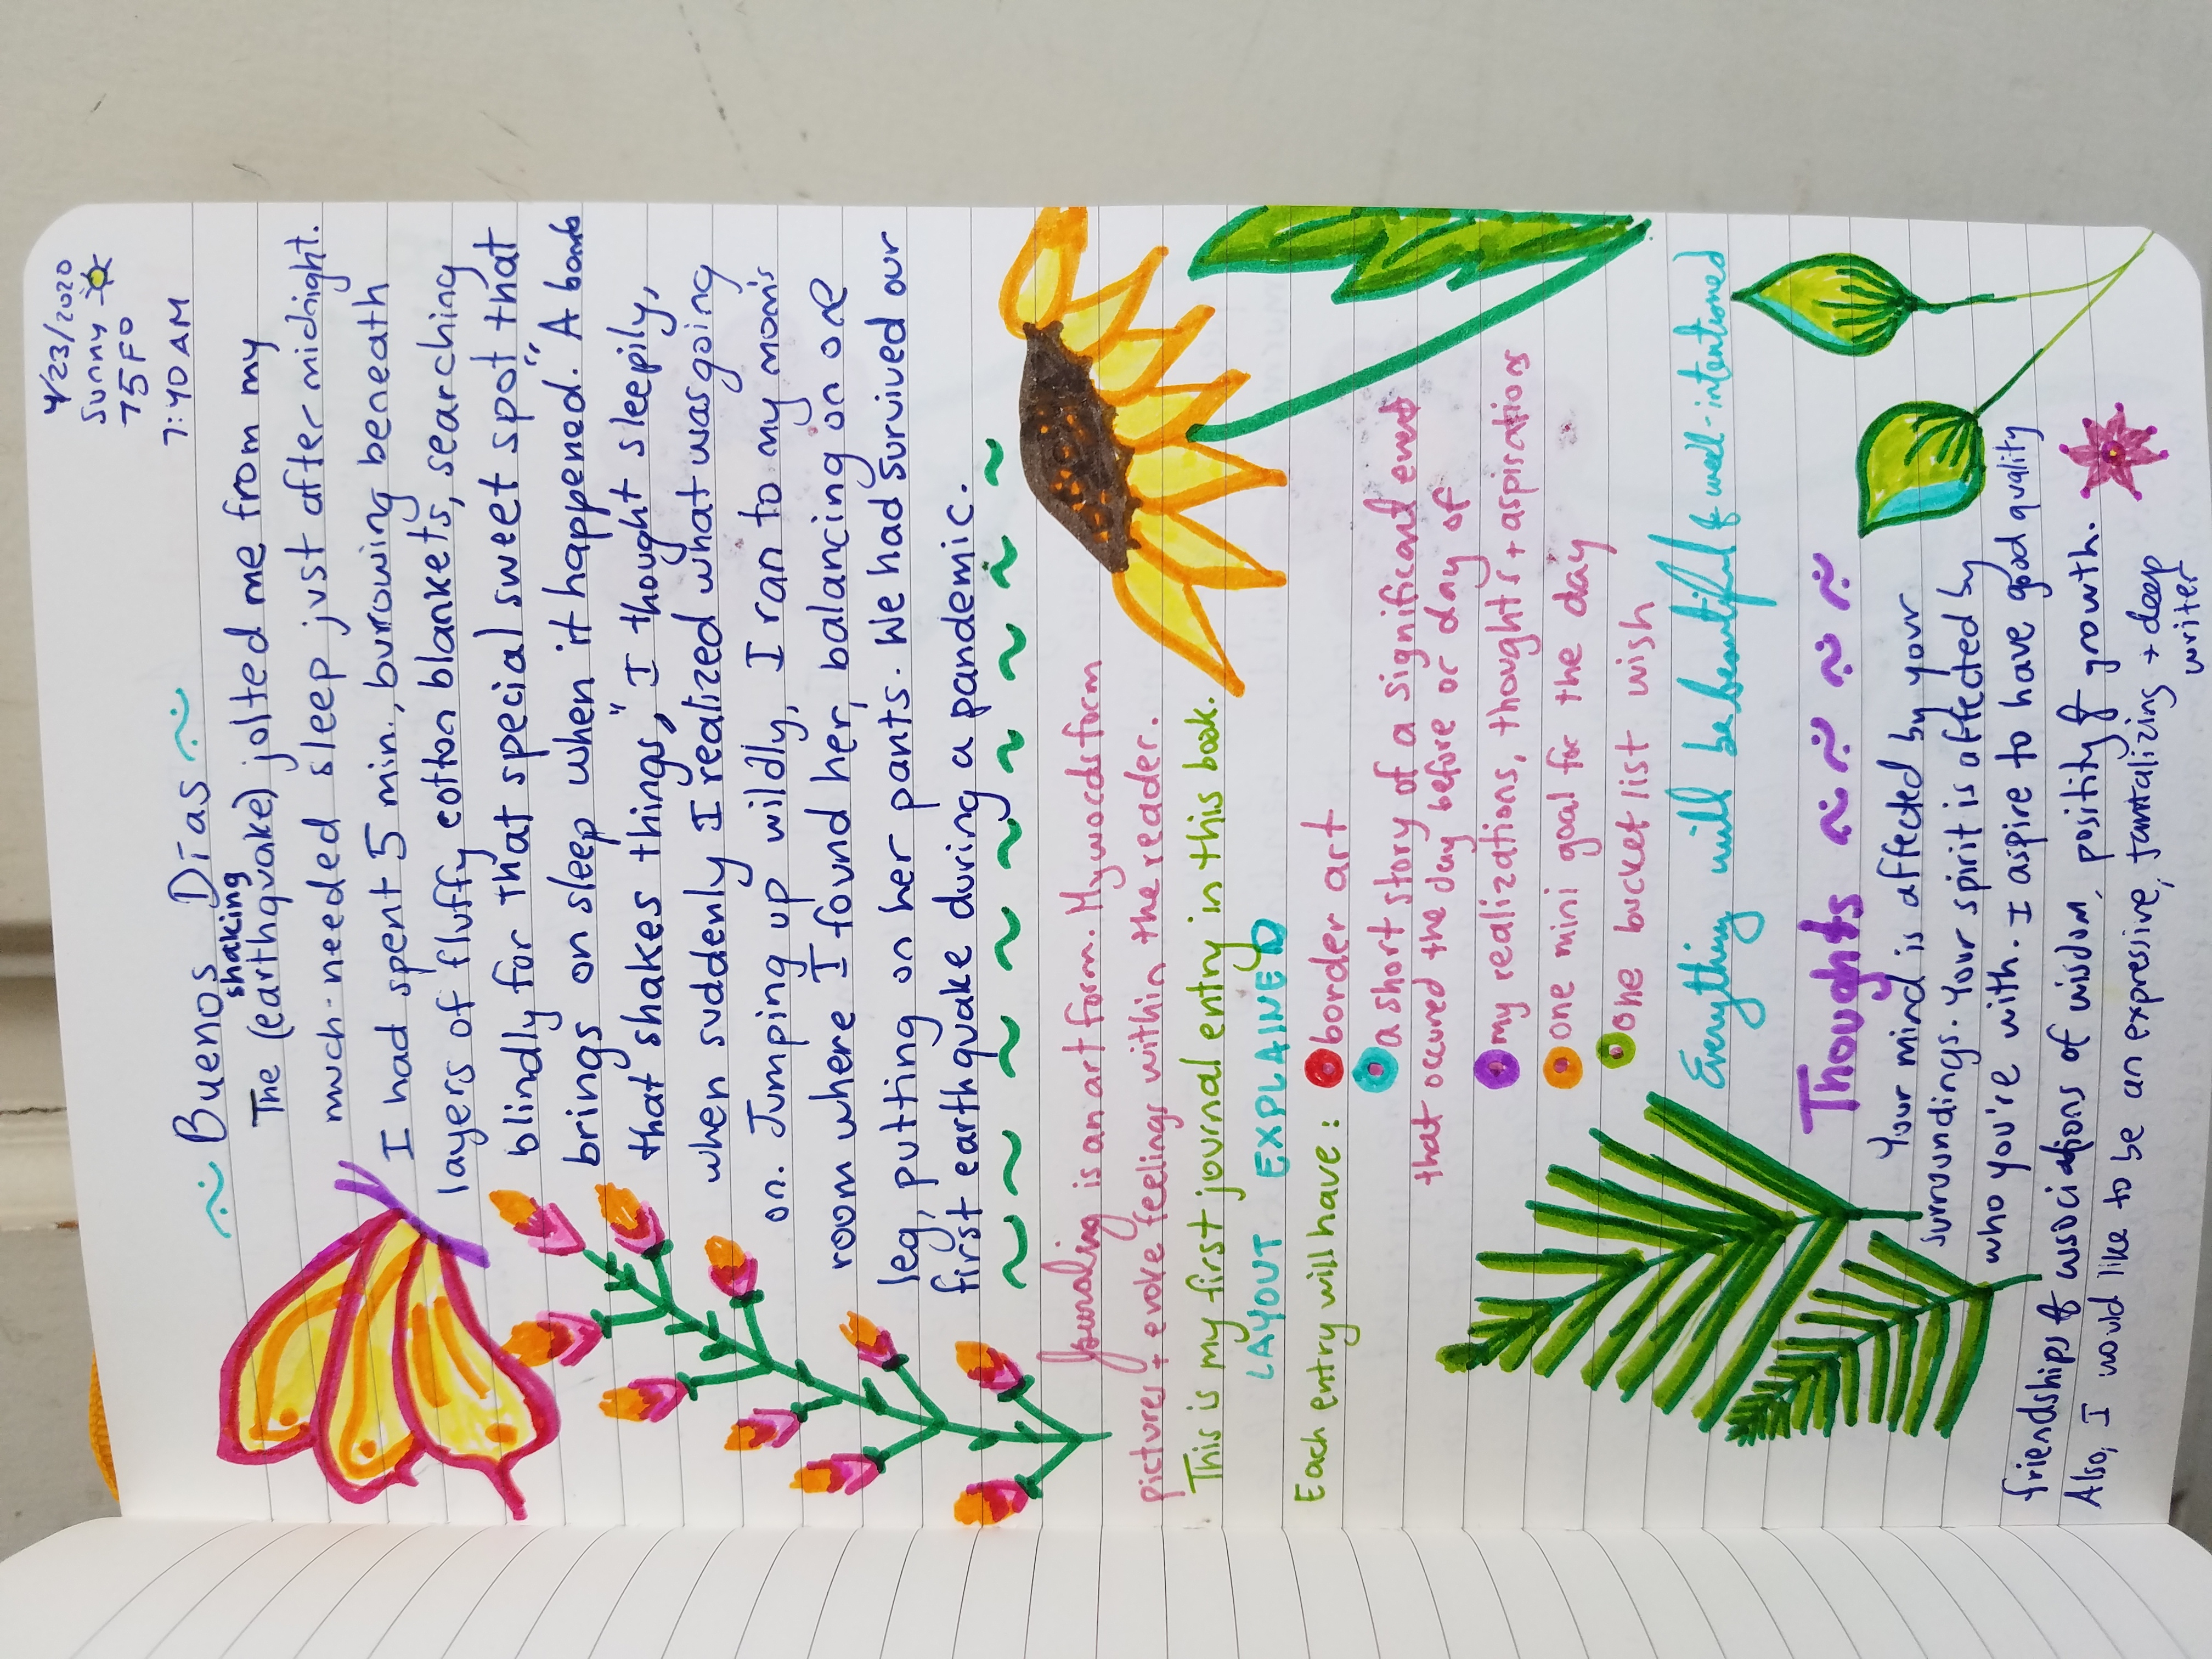 4/23/2020
Sunny
75 F°
7:40 AM
~ Buenos Días ~
shaking
The (earthquake) jolted me from my
much-needed sleep just after midnight.
I had spent 5 min., burrowing beneath
layers of fluffy cotton blankets, searching
blindly for that special sweet spot that
brings on sleep when it happened. "A bomb
that shakes things," I thought sleepily,
when suddenly I realized what was going
on. Jumping up wildly, I ran to my mom's
room where I found her, balancing on one
leg, putting on her pants. We had survived our
first earthquake during a pandemic.
~ ~ ~ ~ ~ ~ ~ ~ ~
Journaling is an art form. My words form
pictures + evoke feelings within the reader.
This is my first journal entry in this book.
LAYOUT EXPLAINED
Each entry will have: border art
a short story of a significant event
that occured the day before or day of
my realizations, thoughts + aspirations
one mini goal for the day
one bucket list wish
Everything will be beautiful & well-intentioned
Thoughts ~ ~ ~ ~
Your mind is affected by your
surroundings. Your spirit is affected by
who you're with. I aspire to have good quality
friendships & associations of wisdom, positity & growth.
Also, I would like to be an expressive, tantalizing + deep
writer